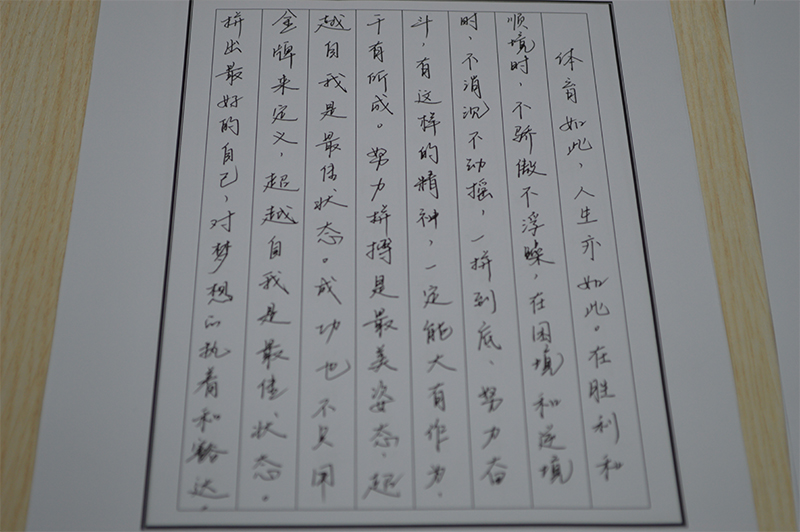 体育如此，人生亦如此。在胜利和
顺境时，不骄傲不浮躁，在困境和逆境
时，不消沉不动摇，一拼到底、努力奋
斗，有这样的精神，一定能大有作为，
干有所成。努力拼搏是最美姿态，超
越自我是最佳状态。成功也不只用
金牌来定义，超越自我是最佳状态。
拼出最好的自己，对梦想的执着和豁达。